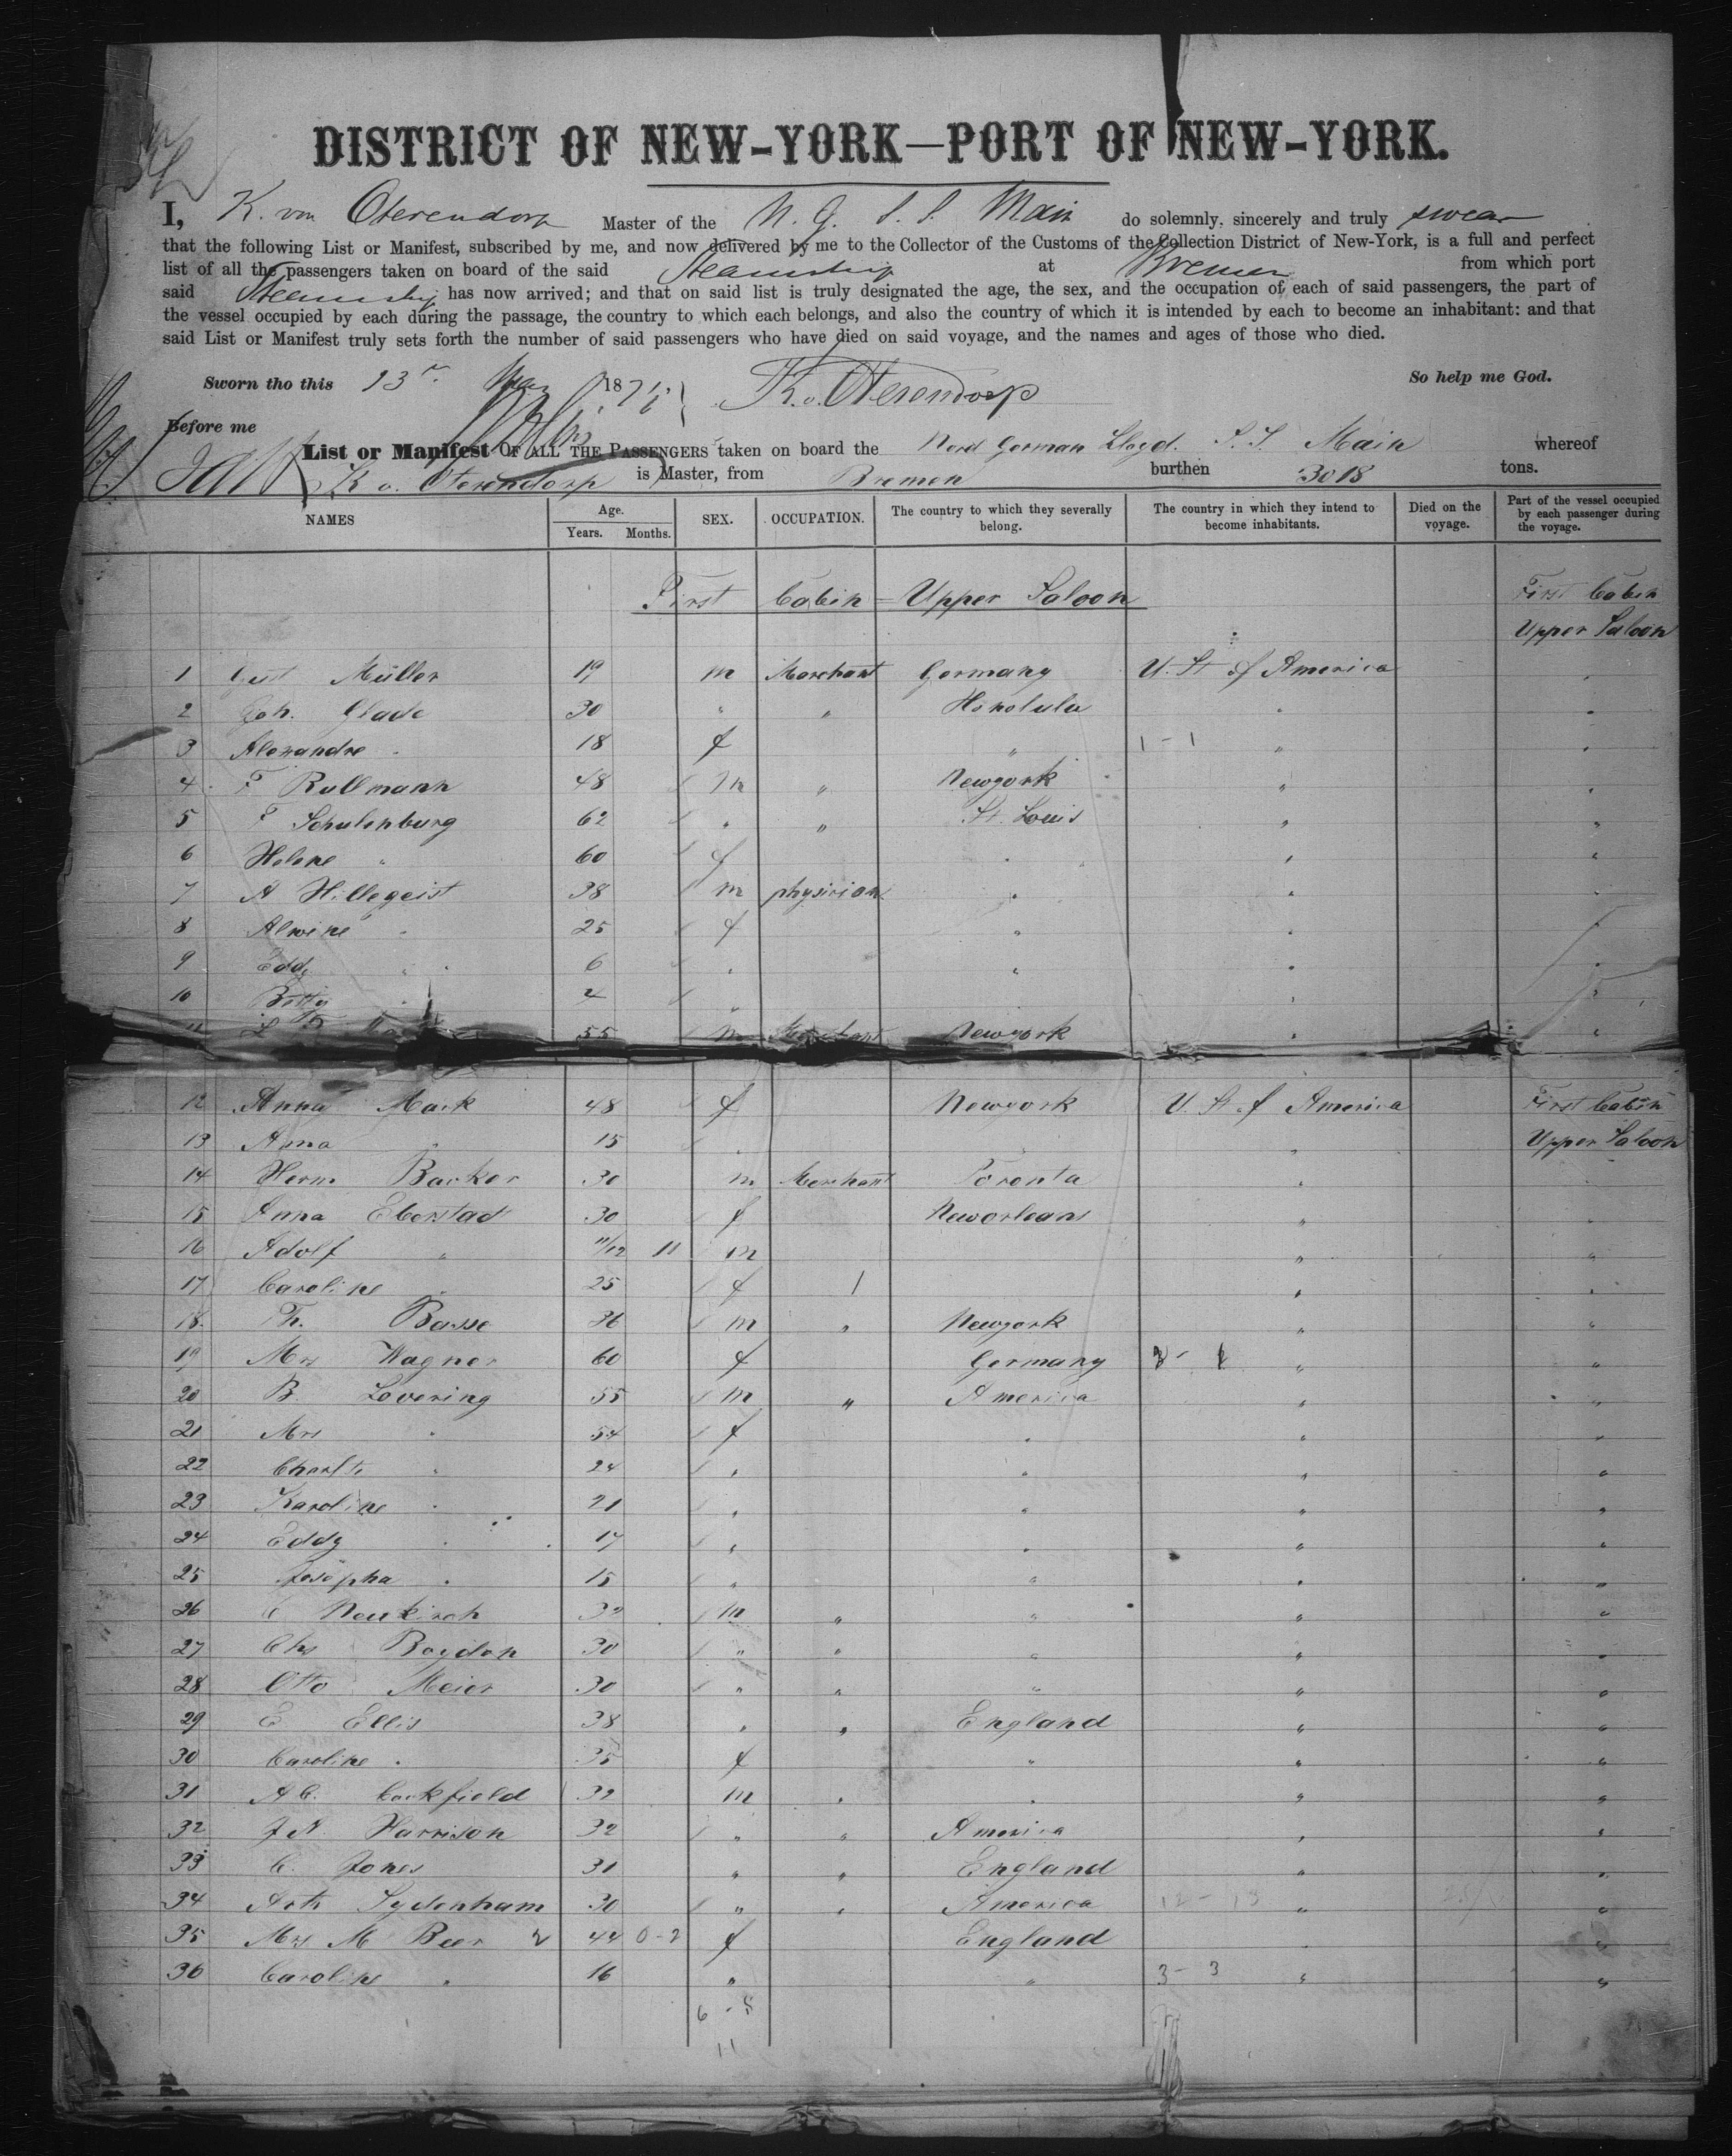 DISTRICT OF NEW-YORK—PORT OF NEW-YORK.
I, K. von Oterendorp Master of the N. G. S. S. Main do solemnly, sincerely and truly swear
that the following List or Manifest, subscribed by me, and now delivered by me to the Collector of the Customs of the Collection District of New-York, is a full and perfect
list of all the passengers taken on board of the said Steamship at Bremen from which port
said Steamship has now arrived; and that on said list is truly designated the age, the sex, and the occupation of each of said passengers, the part of
the vessel occupied by each during the passage, the country to which each belongs, and also the country of which it is intended by each to become an inhabitant: and that
said List or Manifest truly sets forth the number of said passengers who have died on said voyage, and the names and ages of those who died.
Sworn tho this 1875 K. v. Oterendorp So help me God.
Before me
List or Manifest OF ALL THE PASSENGERS taken on board the Nord German Lloyd. S. S. Main whereof
K v. Oterendorp is Master, from Bremen burthen 3018 tons.
NAMES Age. Years. Months. SEX. OCCUPATION. The country to which they severally belong. The country in which they intend to become inhabitants. Died on the voyage. Part of the vessel occupied by each passenger during the voyage.
First Cabin - Upper Saloon First Cabin
Upper Saloon
1 Gust Müller 19 m Merchant Germany U. St. of America
2 Joh. Glade 30 " " Honolulu "
3 Alexandre " 18 f " 1 - 1 "
4 F Rullmann 48 m " Newyork "
5 F Schulenburg 62 " " St. Louis "
6 Helene " 60 f " "
7 A Hillegeist 38 m physician " "
8 Alwine " 25 f " "
9 Edd. " 6 " " "
10 Betty " 2 " " "
11 55 m Merchant Newyork "
12 Anna Mack 48 f Newyork U. St. of America First Cabin
13 Anna " 15 " " Upper Saloon
14 Herm. Backer 30 m Merchant Toronta "
15 Anna Eberstad 30 f Neworleans "
16 Adolf " 11/12 11 m "
17 Caroline " 25 f "
18 Th. Basse 36 m " Newyork "
19 Mrs Wagner 60 f Germany "
20 B. Lovering 55 m " America "
21 Mrs " 54 f " "
22 Charlt. " 24 " " "
23 Karoline " 21 " " "
24 Eddy " 17 " " "
25 Josepha " 15 " " "
26 C Neukirch 32 m " " "
27 Chs Boyden 30 " " " "
28 Otto Meier 30 " " " "
29 E Ellis 38 " " England "
30 Caroline " 35 f " "
31 A C. Cockfield 32 m " " "
32 J. N. Harrison 32 " " America "
33 C. Jones 31 " " England "
34 Arth Sydenham 30 " " America 12 - 13 "
35 Mrs M Beer 2 44 0 - 2 f England "
36 Caroline " 16 " " 3 - 3 "
6 - 5
11